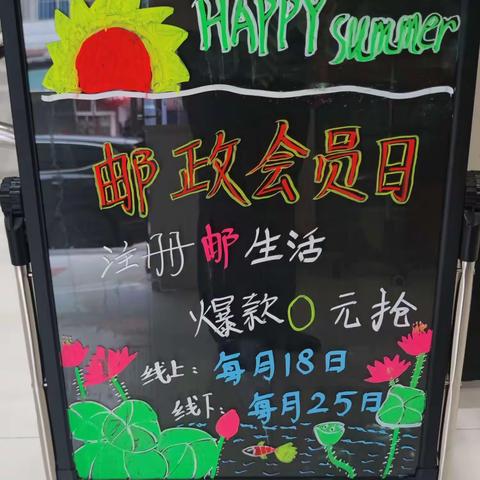 HAPPY summer
邮政会员日
注册邮生活
爆款0元抢
线上：每月18日
线下：每月25日